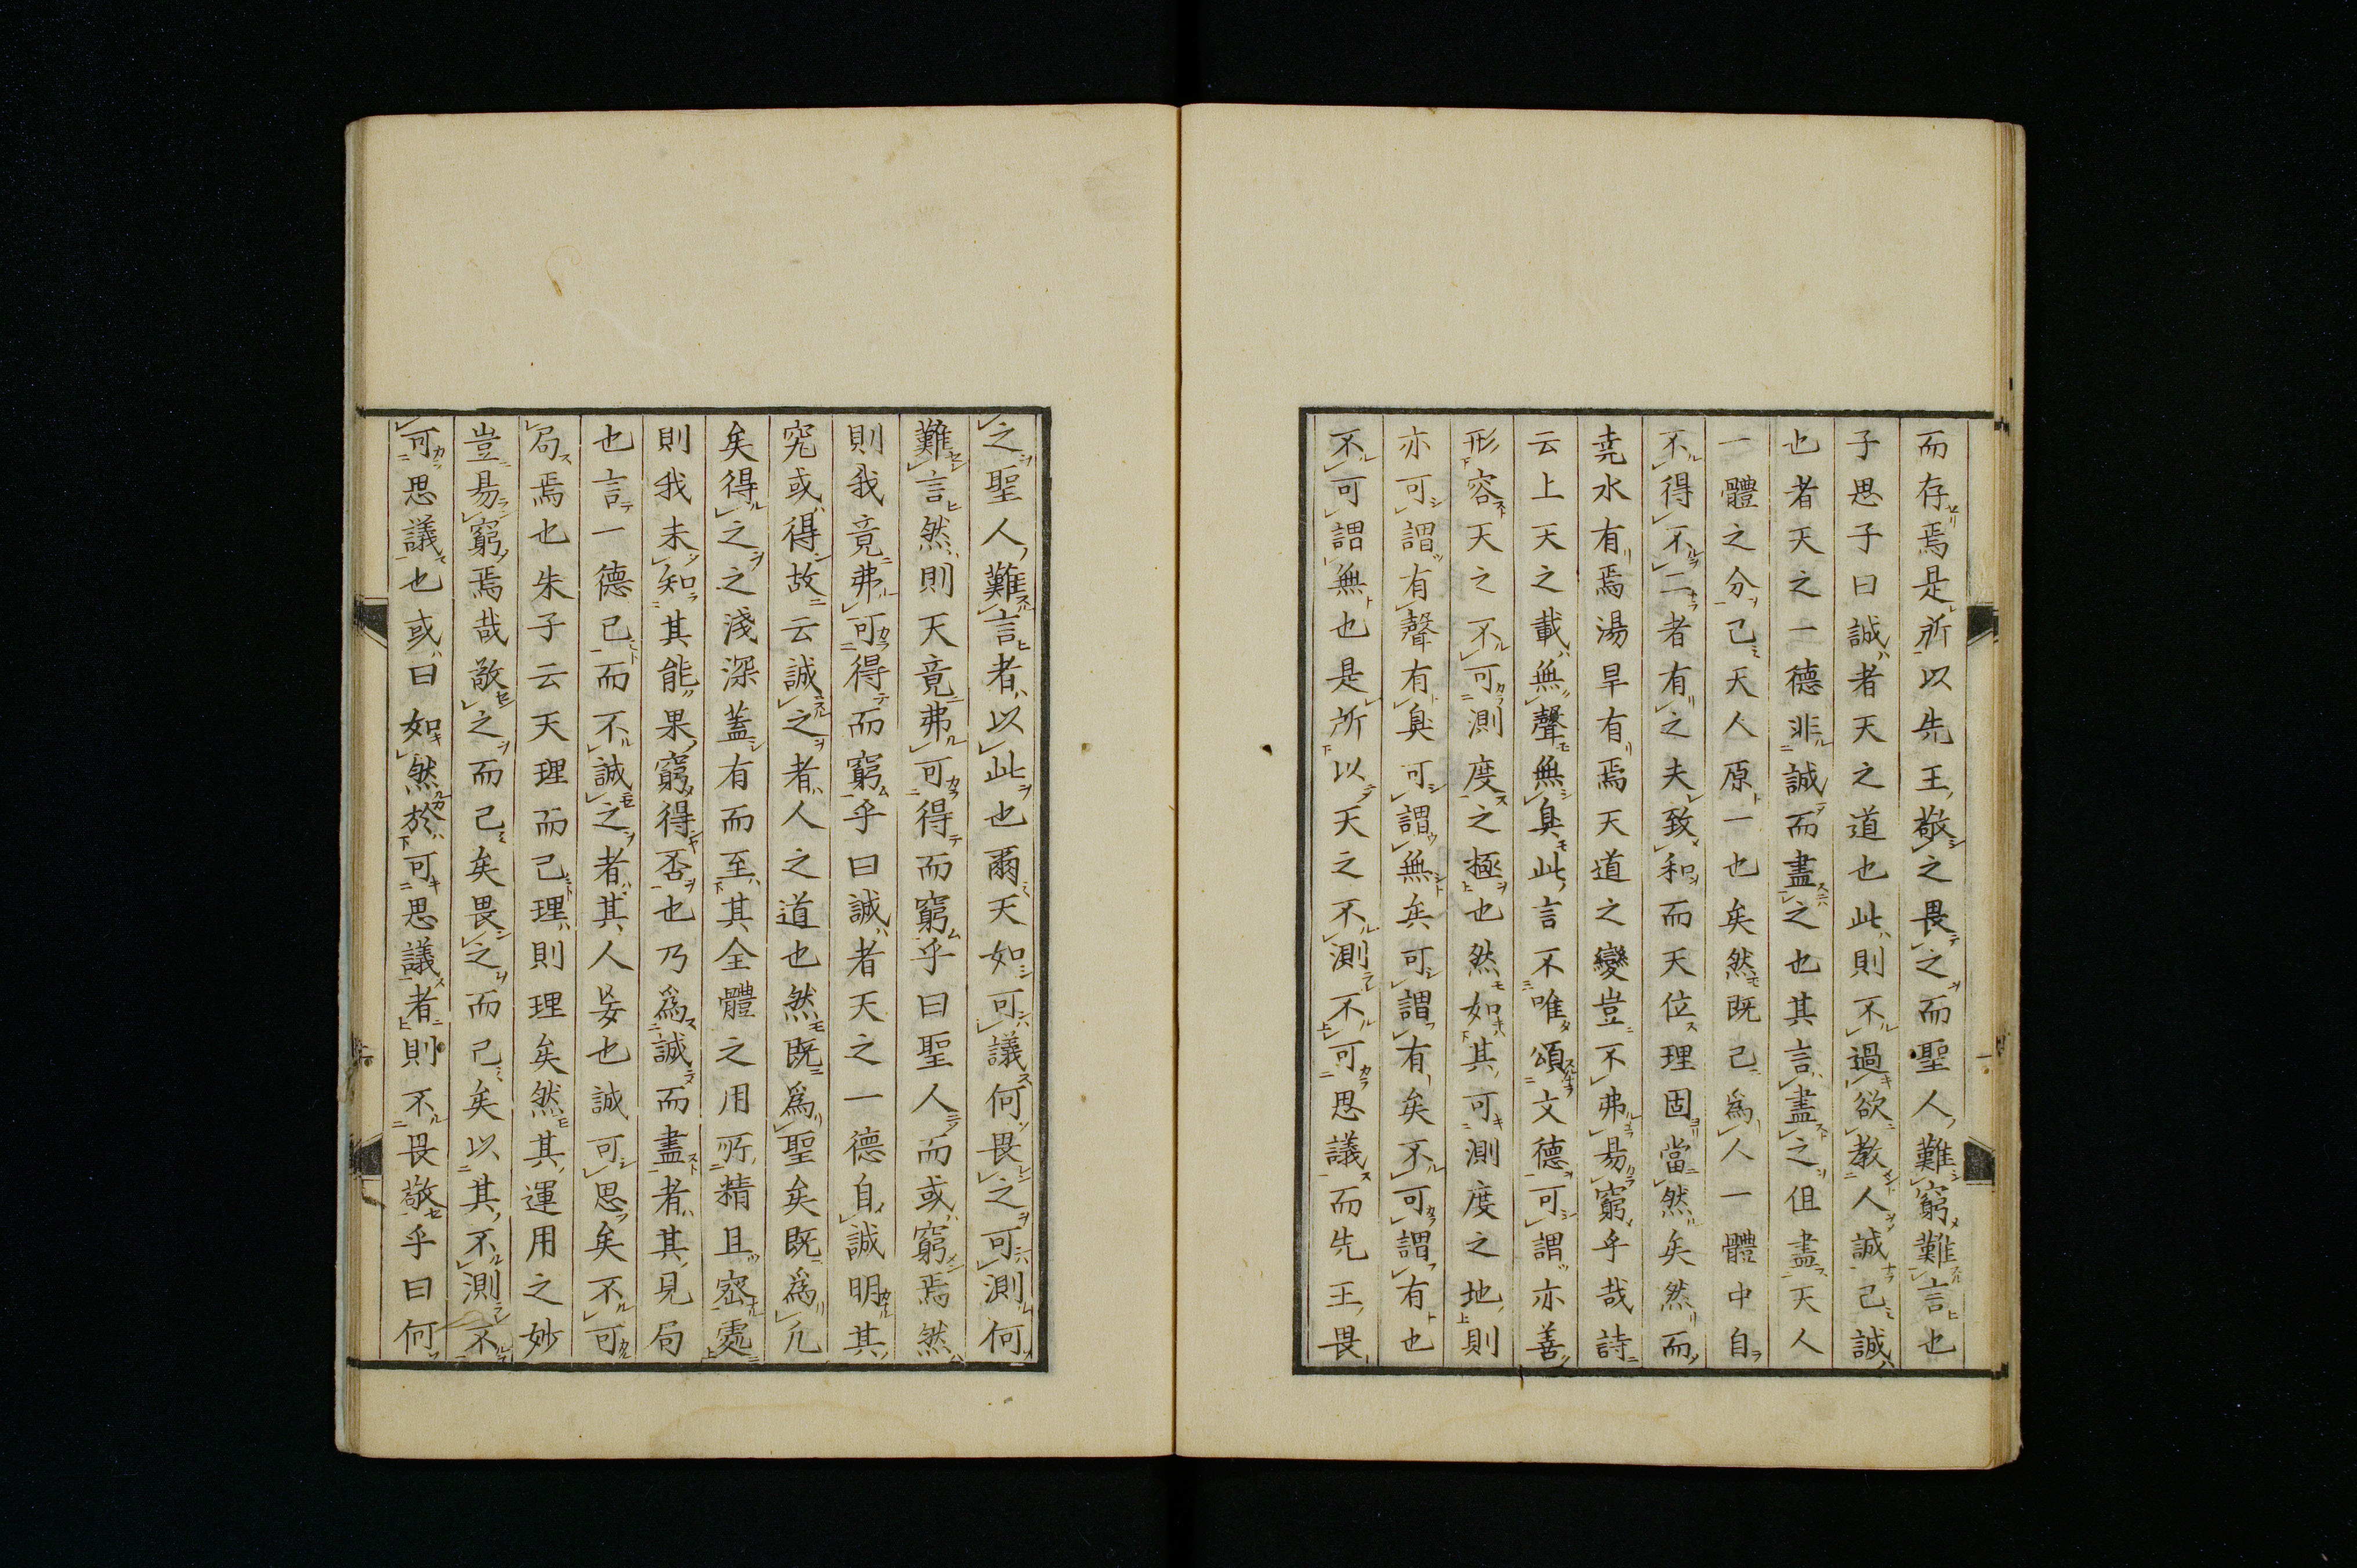 而存焉是所以先王敬之畏之而聖人難窮難言也
子思子曰誠者天之道也此則不過欲教人誠己誠
也者天之一德非誠而盡之也其言盡之但盡天人
一體之分己天人原一也矣然既己爲人一體中自
不得不二者有之夫致和而天位理固當然矣然而
堯水有焉湯旱有焉天道之變豈不弗易窮乎哉詩
云上天之載無聲無臭此言不唯頌文德可謂亦善
形容天之不可測度之極也然如其可測度之地則
亦可謂有聲有臭可謂無矣可謂有矣不可謂有也
不可謂無也是所以天之不測不可思議而先王畏
之聖人難言者以此也爾天如可議何畏之可測何
難言然則天竟弗可得而窮乎曰聖人而或窮焉然
則我竟弗可得而窮乎曰誠者天之一德自誠明其
究或得故云誠之者人之道也然既爲聖矣既爲凢
矣得之之淺深蓋有而至其全體之用所精且密處
則我未知其能果窮得否也乃爲誠而盡者其見局
也言一德己而不誠之者其人妄也誠可思矣不可
局焉也朱子云天理而己理則理矣然其運用之妙
豈易窮焉哉敬之而己矣畏之而己矣以其不測不
可思議也或曰如然於可思議者則不畏敬乎曰何